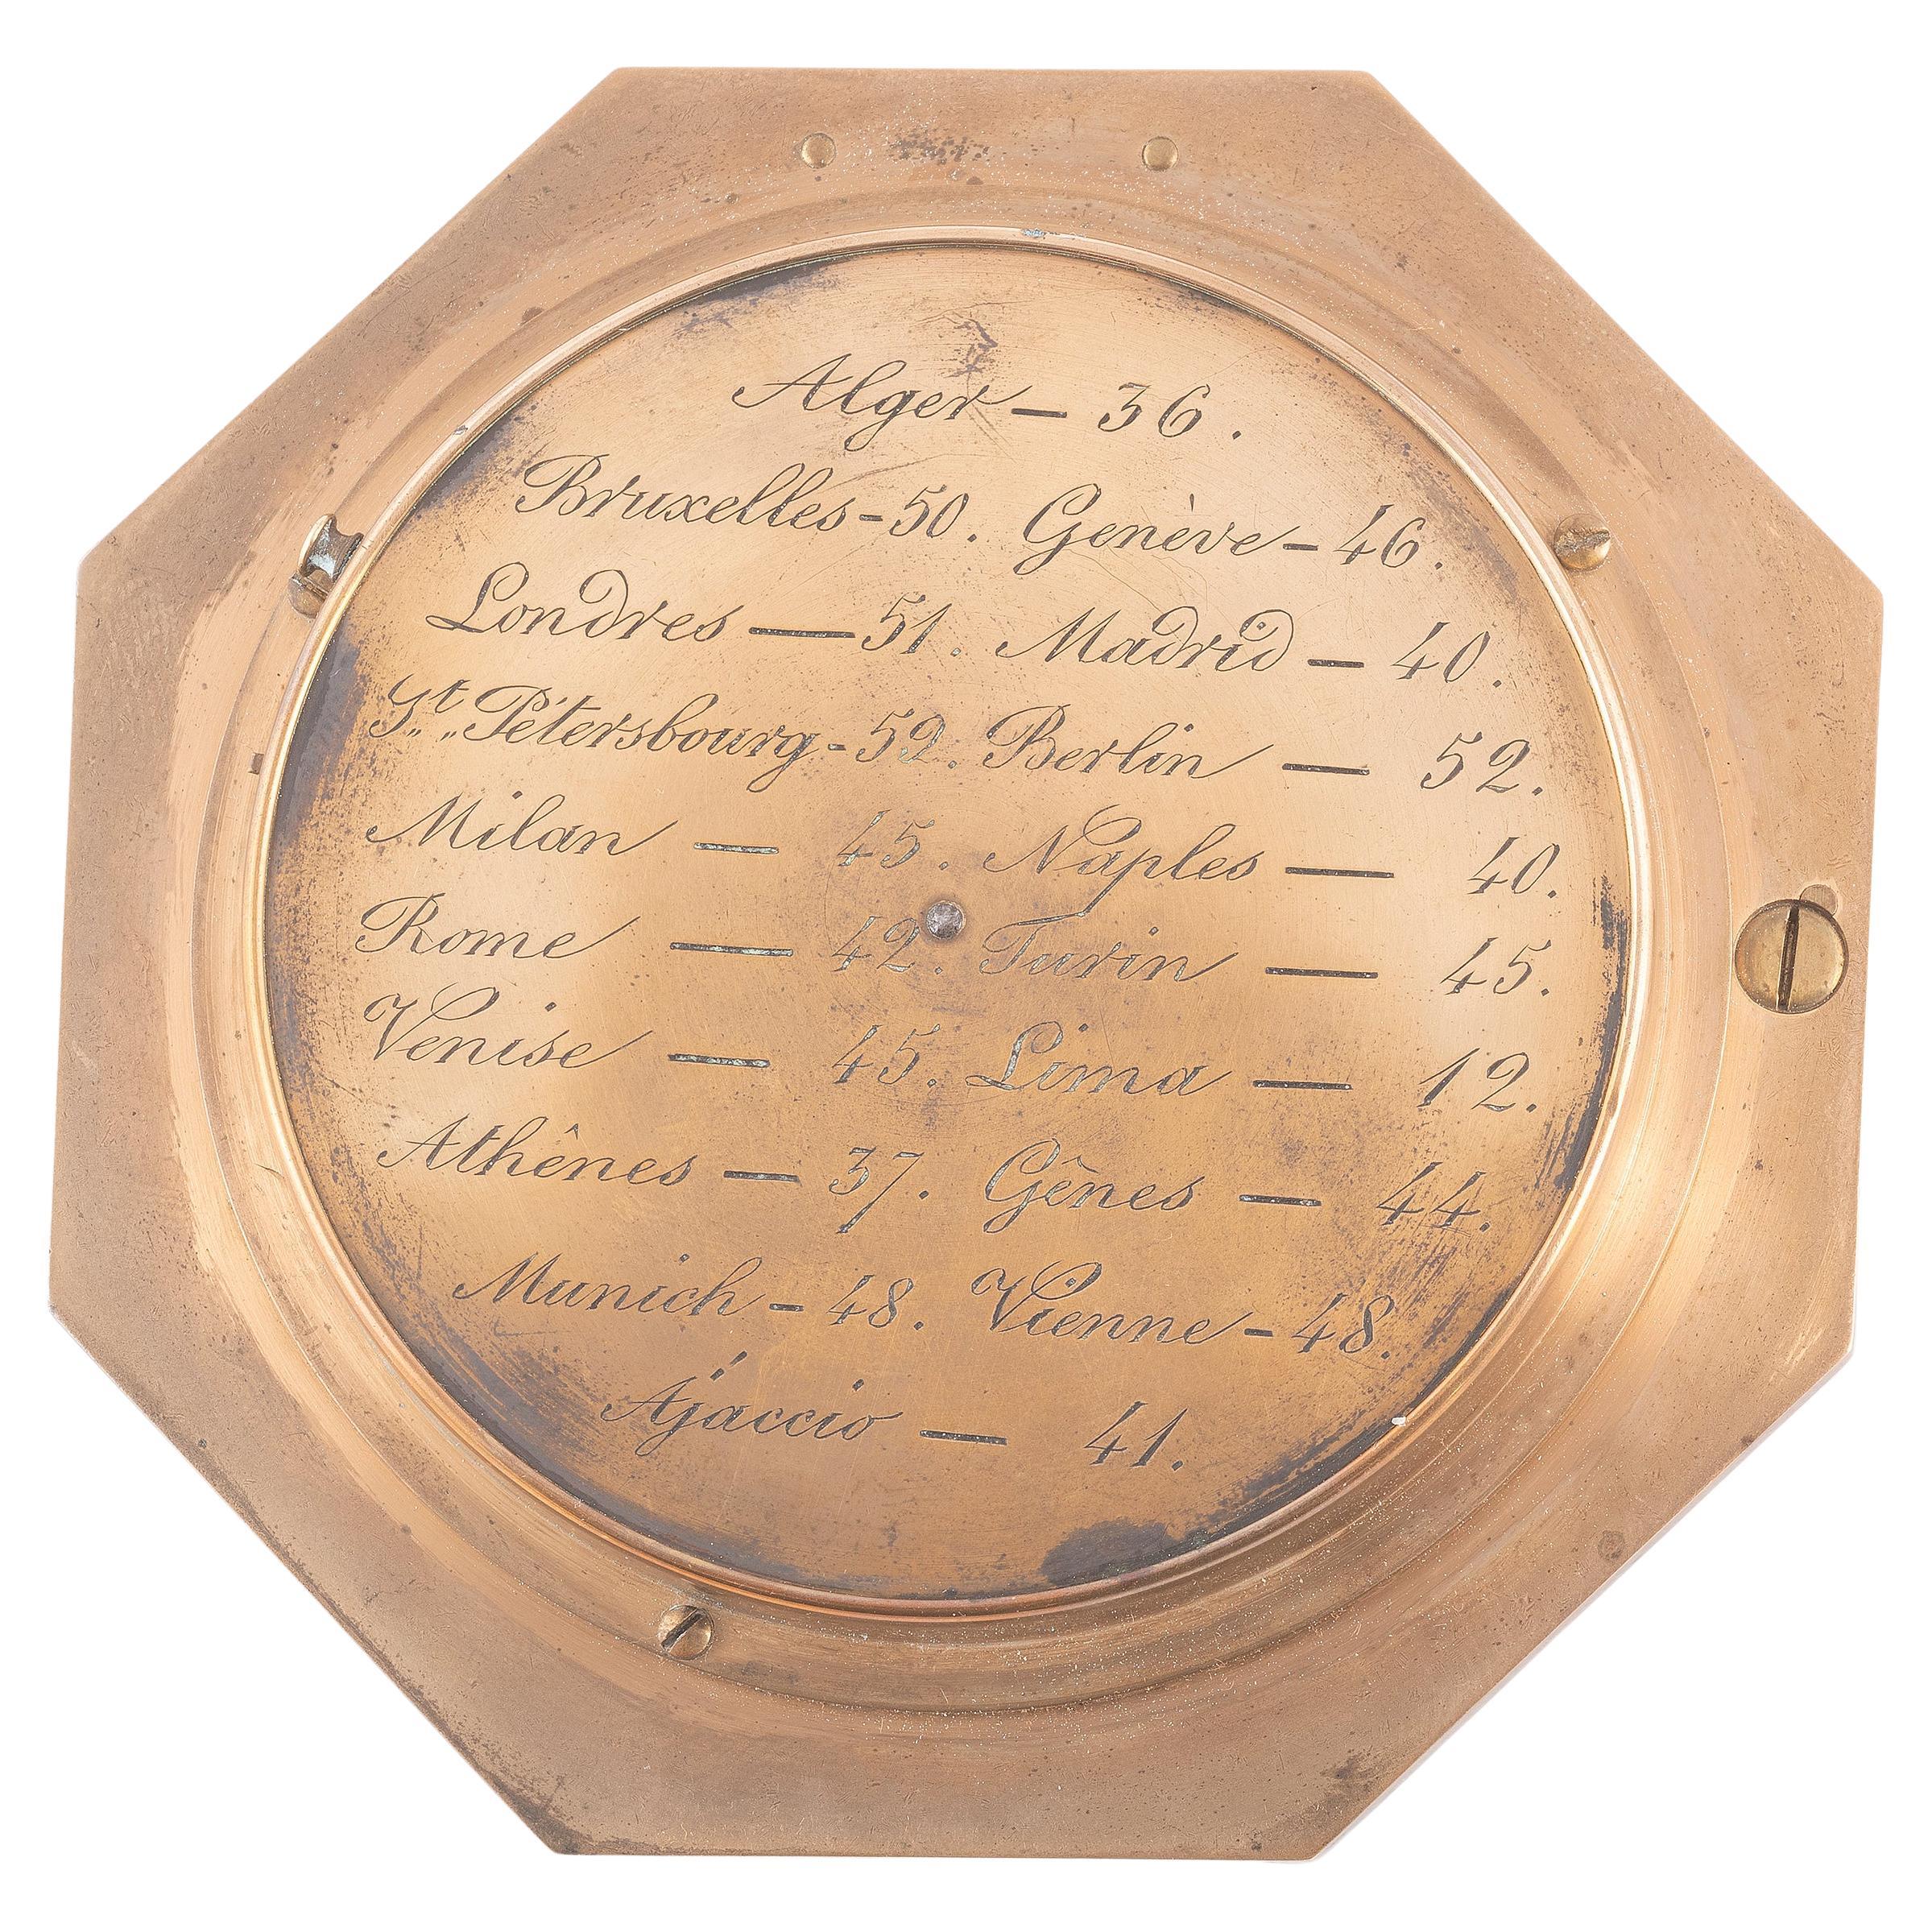 Alger — 36.
Bruxelles - 50. Genève - 46.
Londres — 51. Madrid — 40.
St. Pétersbourg - 52. Berlin — 52.
Milan — 45. Naples — 40.
Rome — 42. Turin — 45.
Venise — 45. Lima — 12.
Athênes — 37. Gênes — 44.
Munich - 48. Vienne - 48.
Ajaccio — 41.